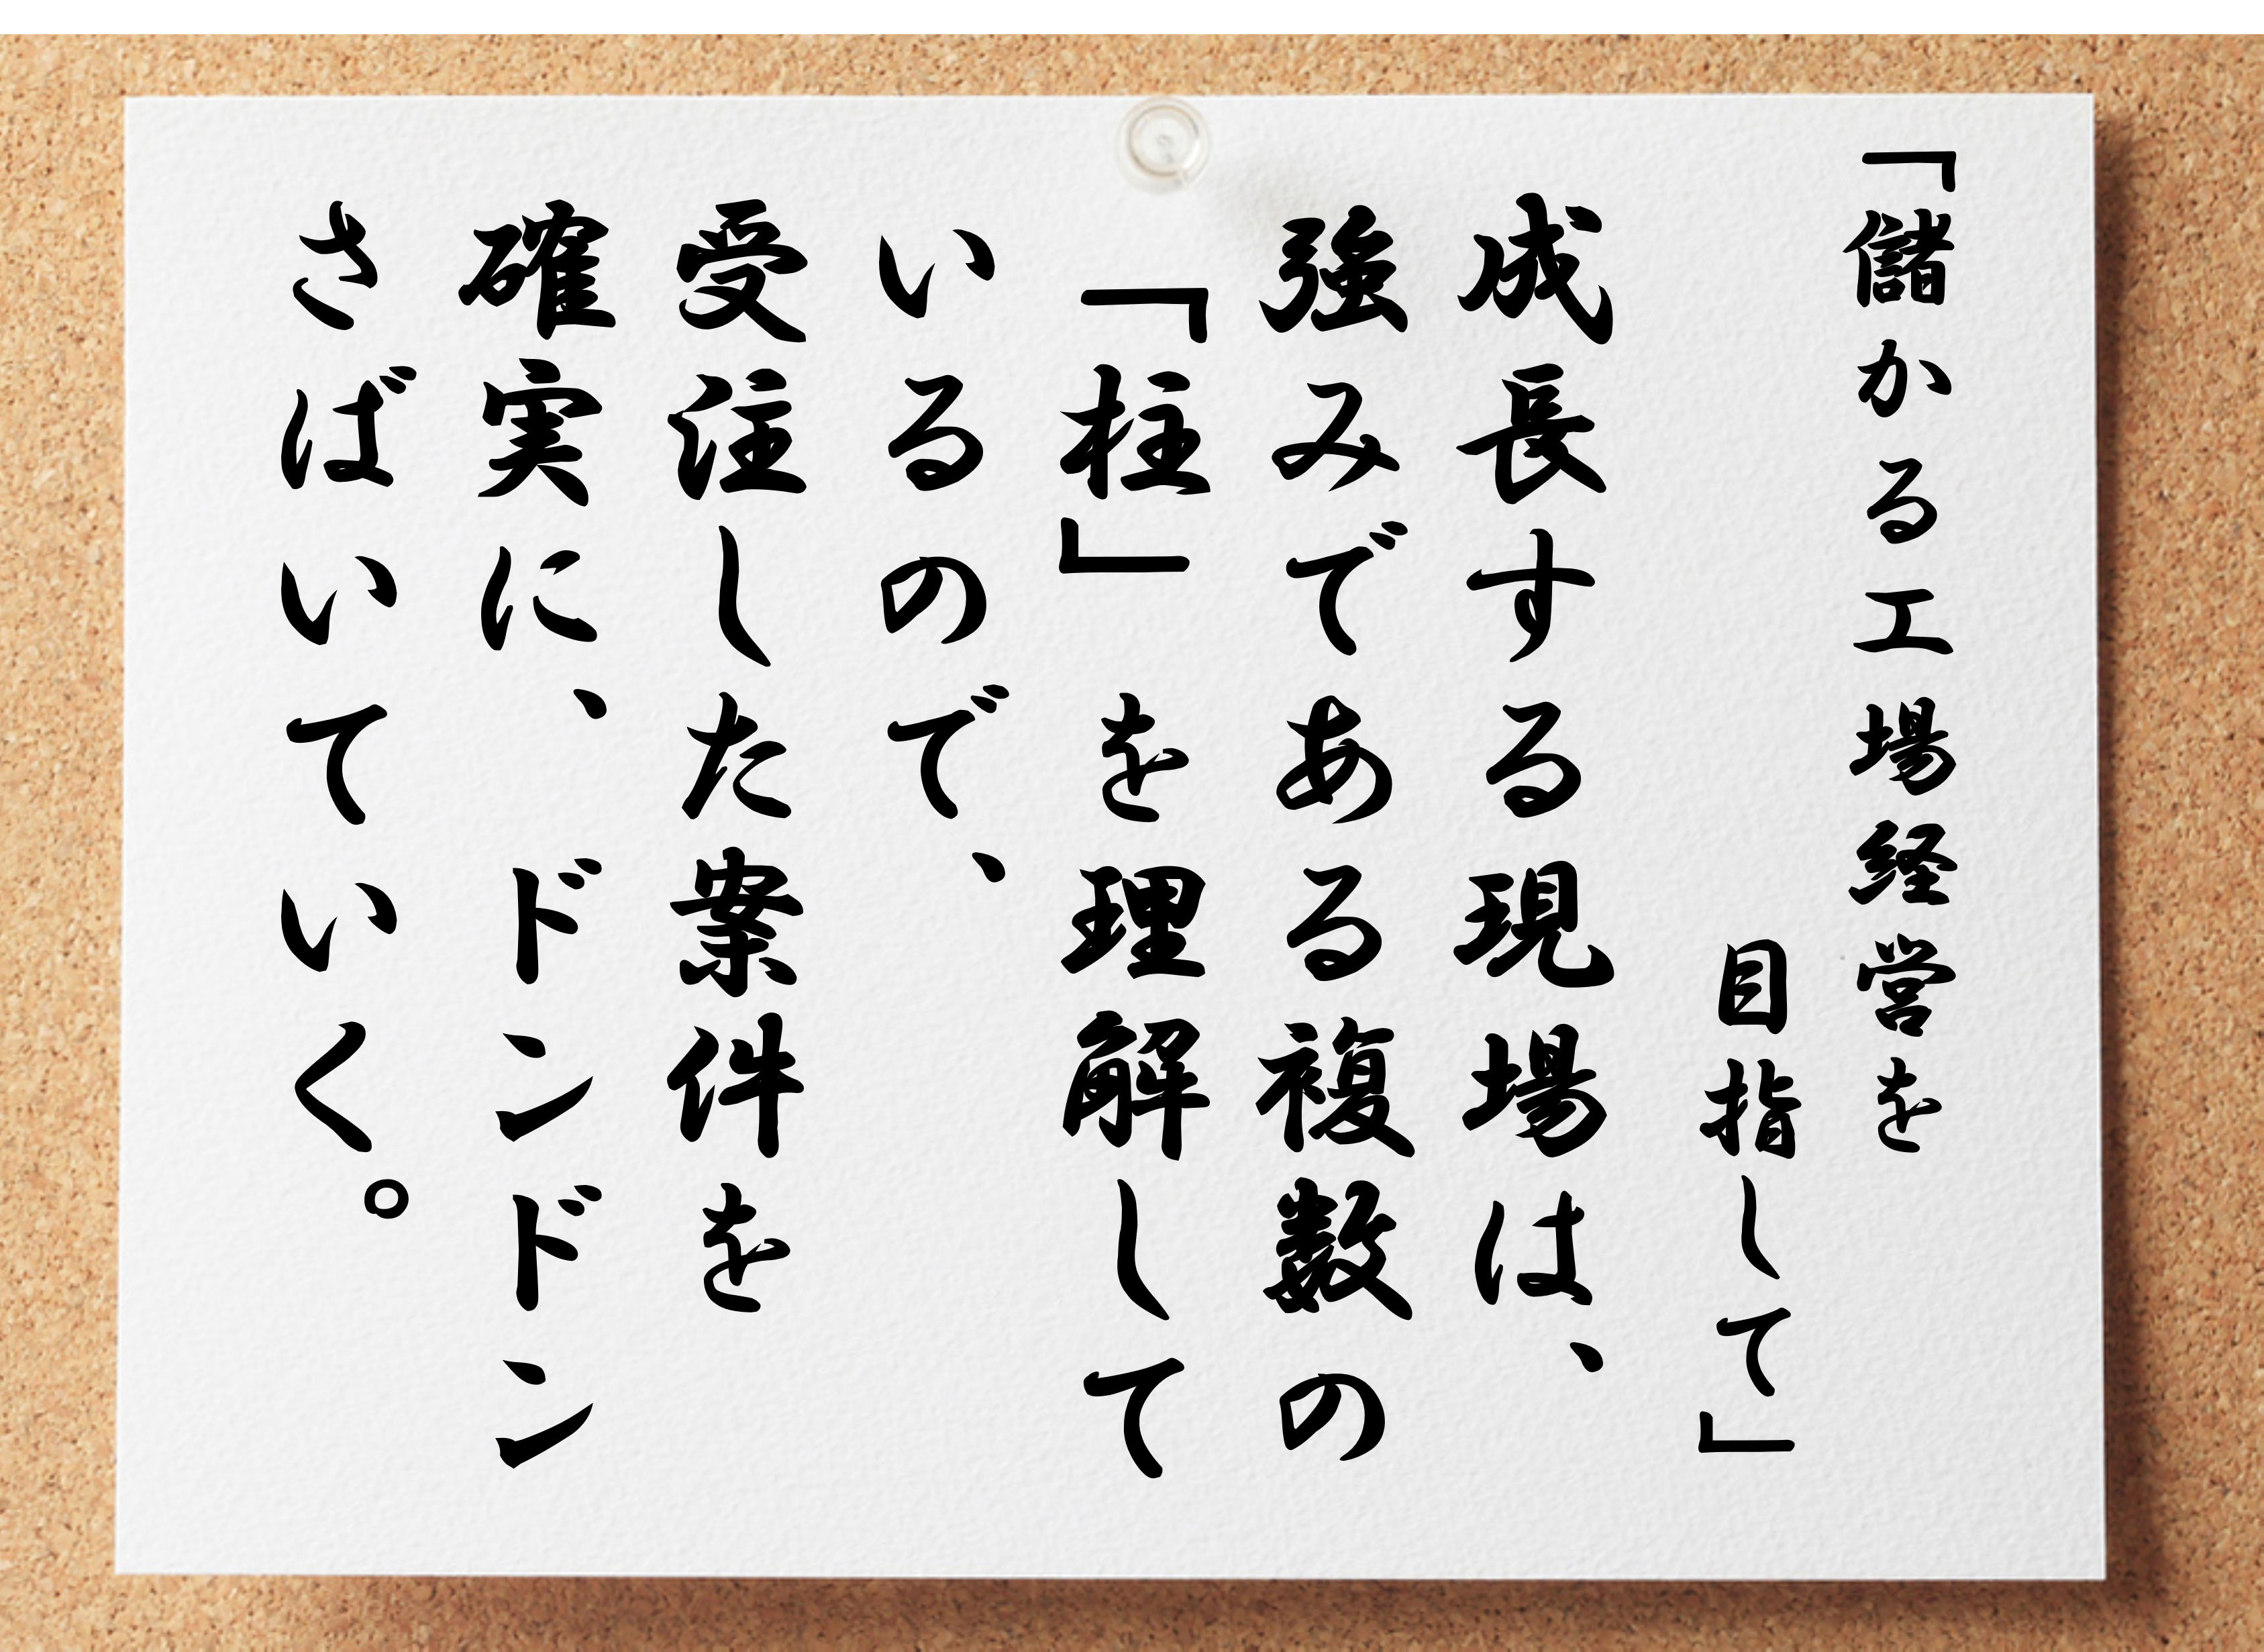 「儲かる工場経営を
目指して」
成長する現場は、
強みである複数の
「柱」を理解して
いるので、
受注した案件を
確実に、ドンドン
さばいていく。